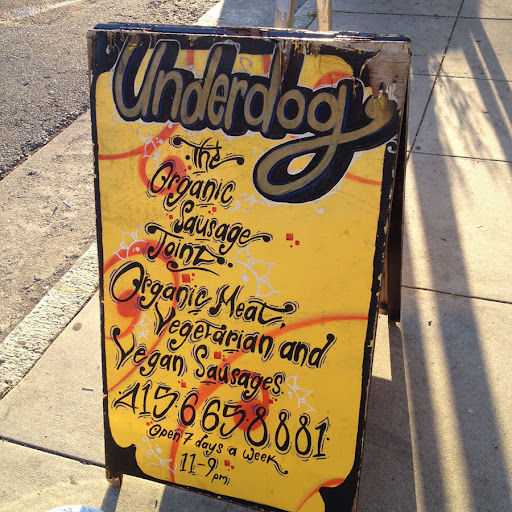 Underdog
The
Organic
Sausage
Joint.
Organic Meat,
Vegetarian and
Vegan Sausages
415 665 8881
Open 7 days a week
11-9 pm